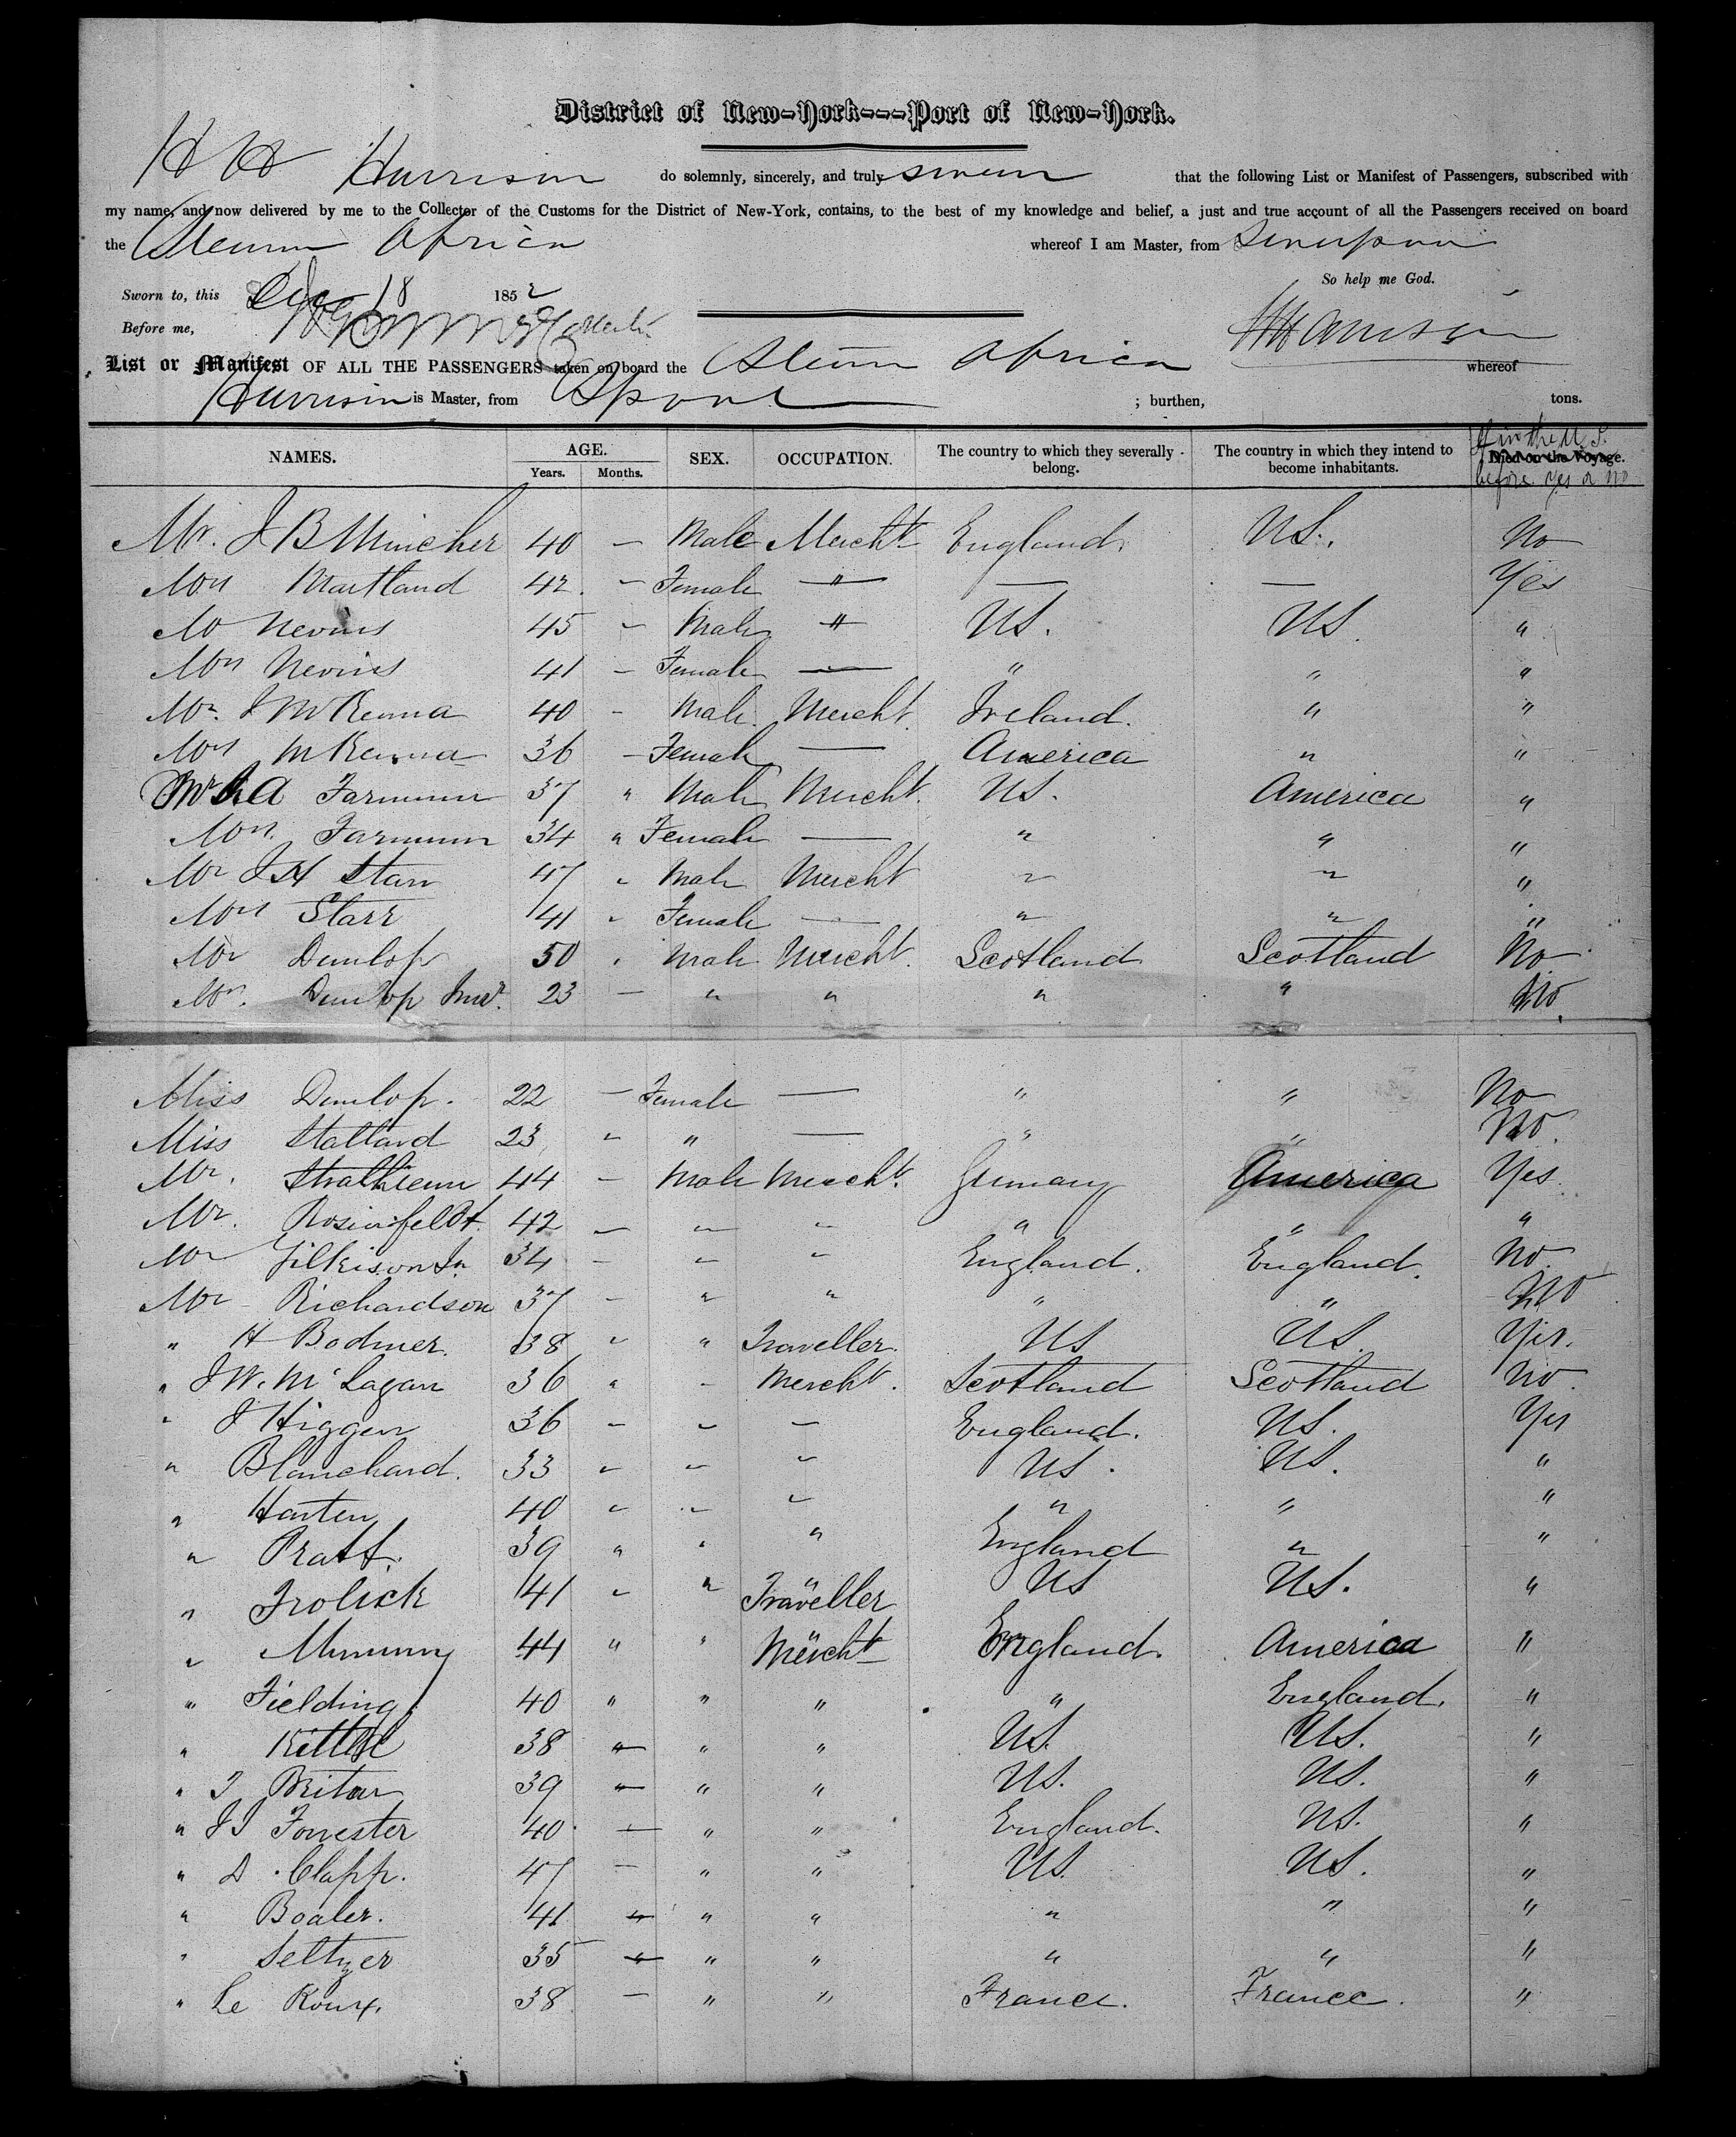 District of New-York---Port of New-York.
Harrison do solemnly, sincerely, and truly swear that the following List or Manifest of Passengers, subscribed with
my name, and now delivered by me to the Collector of the Customs for the District of New-York, contains, to the best of my knowledge and belief, a just and true account of all the Passengers received on board
the Steamer Africa whereof I am Master, from Liverpool
So help me God.
Sworn to, this 18 1852
Before me, Harrison
List or Manifest OF ALL THE PASSENGERS taken on board the Steamer Africa whereof
Harrison is Master, from Lpool ; burthen, tons.
NAMES. AGE. Years. Months. SEX. OCCUPATION. The country to which they severally belong. The country in which they intend to become inhabitants. Died on the Voyage.
If in the U.S. before yes or no
Mr. J B Mincher 40 — Male Mercht England. US. No
Mrs Maitland 42 — Female " — — Yes
Mr Nevins 45 " Male " US. US "
Mrs Nevins 41 — Female — " " "
Mr. J McKenna 40 - Male Mercht Ireland. " "
Mrs McKenna 36 — Female — America " "
Mr A Farnum 37 " Male Mercht. US. America "
Mrs. Farnum 34 " Female — " " "
Mr J H Starr 47 " Male Mercht " " "
Mrs Starr 41 " Female — " " "
Mr Dunlop 50 " Male Mercht. Scotland Scotland No
Mr. Dunlop Junr. 23 — " " " " No
Miss Dunlop. 22 — Female — " " No
Miss Stallard 23 " " — " " No
Mr. 44 — Male Mercht. Germany America Yes
Mr. Rosinfeldt 42 — " " " " "
Mr Gilkison Jr 34 - " " England. England. No
Mr Richardson 37 - " " " " No
" H Bodmer. 38 " " Traveller. US US Yes.
" J W. McLagan 36 " " Mercht. Scotland Scotland No.
" J Higgin 36 " " " England. US. Yes
" Blanchard. 33 " " " US. US. "
" Harten 40 " " " " " "
" Pratt. 39 " " " England " "
" Frolick 41 " " Traveller US US. "
" 44 " " Mercht England. America "
" Fielding 40 " " " " England. "
" Kittle 38 " " " US. US. "
" J Britar 39 " " " US. US. "
" J J Forrester 40 — " " England. US. "
" D. Clapp. 47 — " " US. US. "
" Boaler. 41 " " " " " "
" Seltzer 35 " " " " " "
" Le Roux. 38 — " " France. France. "